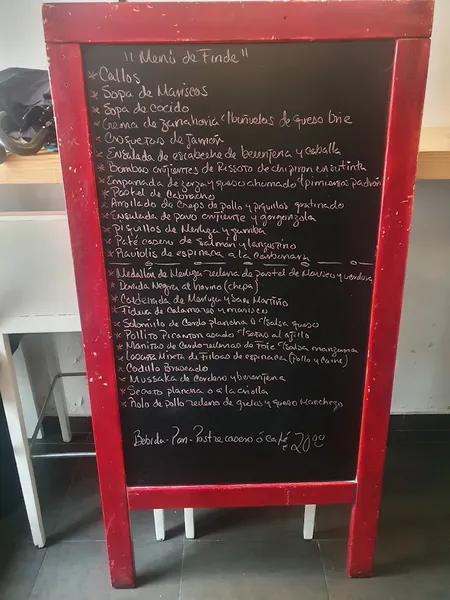 "Menú de Finde"
* Callos
* Sopa de Mariscos
* Sopa de cocido
* Crema de zanahoria c/buñuelos de queso brie
* Croquetas de Jamón
* Ensalada de escabeche de berenjena y caballa
* Bombas crujientes de Rissoto de chipiron en su tinta
* Empanada de zorza y queso ahumado c/pimientos padrón
* Pastel de Cabracho
* Arrollado de Creps de Pollo y piquillos gratinado
* Ensalada de pavo crujiente y gorgonzola
* Piquillos de Merluza y gamba
* Paté casero de salmón y langostino
* Raviolis de espinaca a la Carbonara
* Medallón de Merluza rellena de pastel de Marisco y verdura
* Dorada Negra al horno (chepa)
* Caldereta de Merluza y San Martiño
* Fideua de Calamares y marisco
* Solomillo de Cerdo plancha o c/salsa queso
* Pollito Picanton asado c/setas al ajillo
* Manitas de Cerdo rellenas de Foie c/salsa manzana
* Lasaña Mixta de Filloas de espinaca (Pollo y Carne)
* Codillo Braseado
* Mussaka de Cordero y berenjena
* Secreto plancha o a la criolla
* Rolo de pollo relleno de grelos y queso Manchego
Bebida-Pan-Postre casero ó café € 20,00